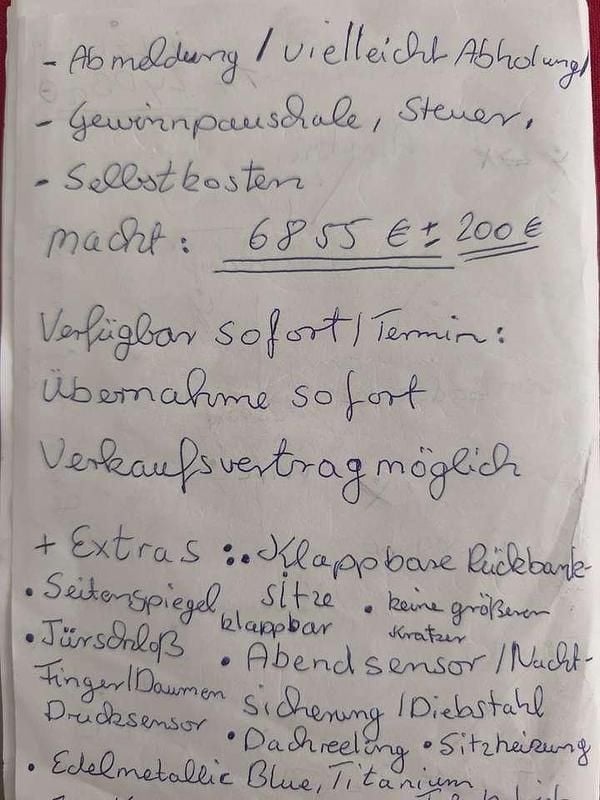 - Abmeldung / vielleicht Abholung/
- Gewinnpauschale, Steuer,
- Selbstkosten
macht: 6855 € ± 200 €
Verfügbar sofort / Termin:
Übernahme sofort
Verkaufsvertrag möglich
+ Extras :. Klappbare Rückbank-
sitze
• Seitenspiegel klappbar
• keine größeren Kratzer
• Türschloß
Finger/Daumen
Drucksensor
• Abendsensor / Nacht-
sicherung / Diebstahl
• Dachreeling • Sitzheizung
• Edelmetallic Blue, Titanium